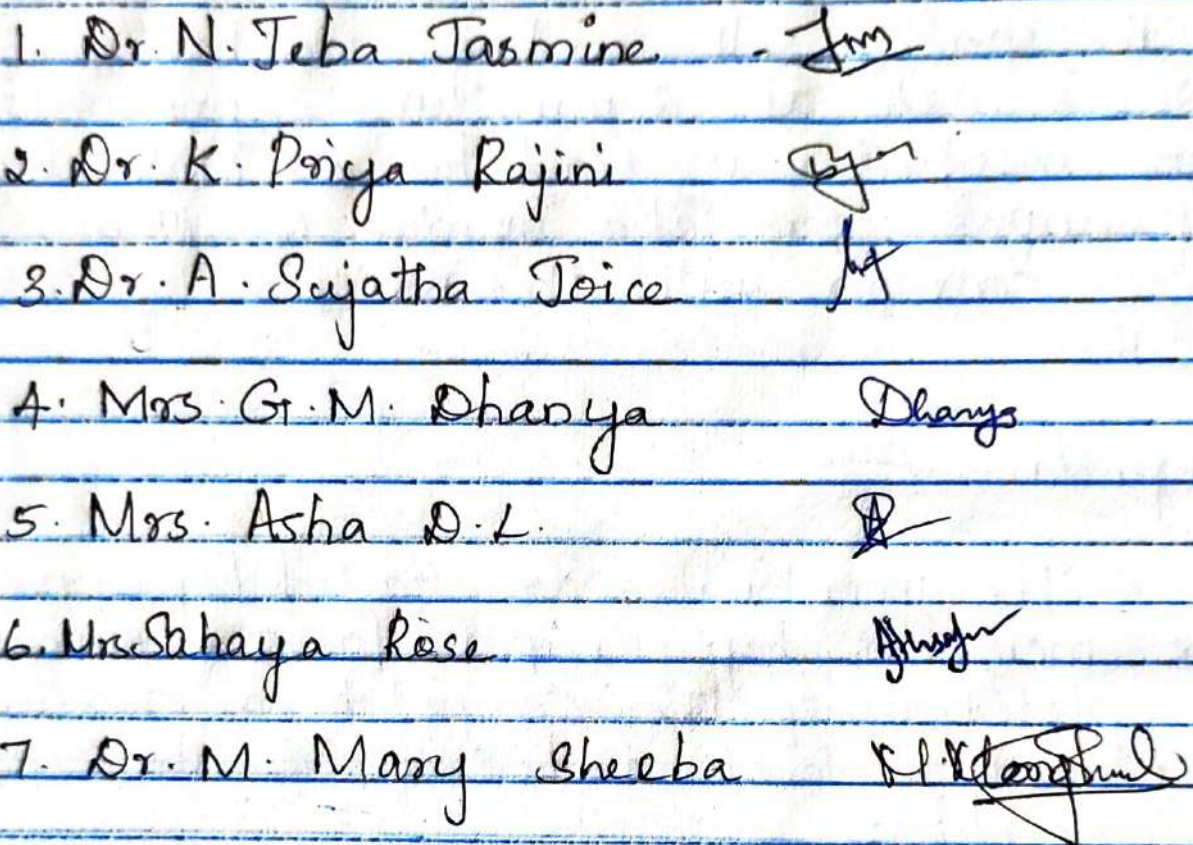 1. Dr. N. Jeba Jasmine -
2. Dr. K. Priya Rajini
3. Dr. A. Sujatha Joice
4. Mrs. G.M. Dhanya Dhanya
5. Mrs. Asha D.L.
6. Mrs Sahaya Rose
7. Dr. M. Mary Sheeba